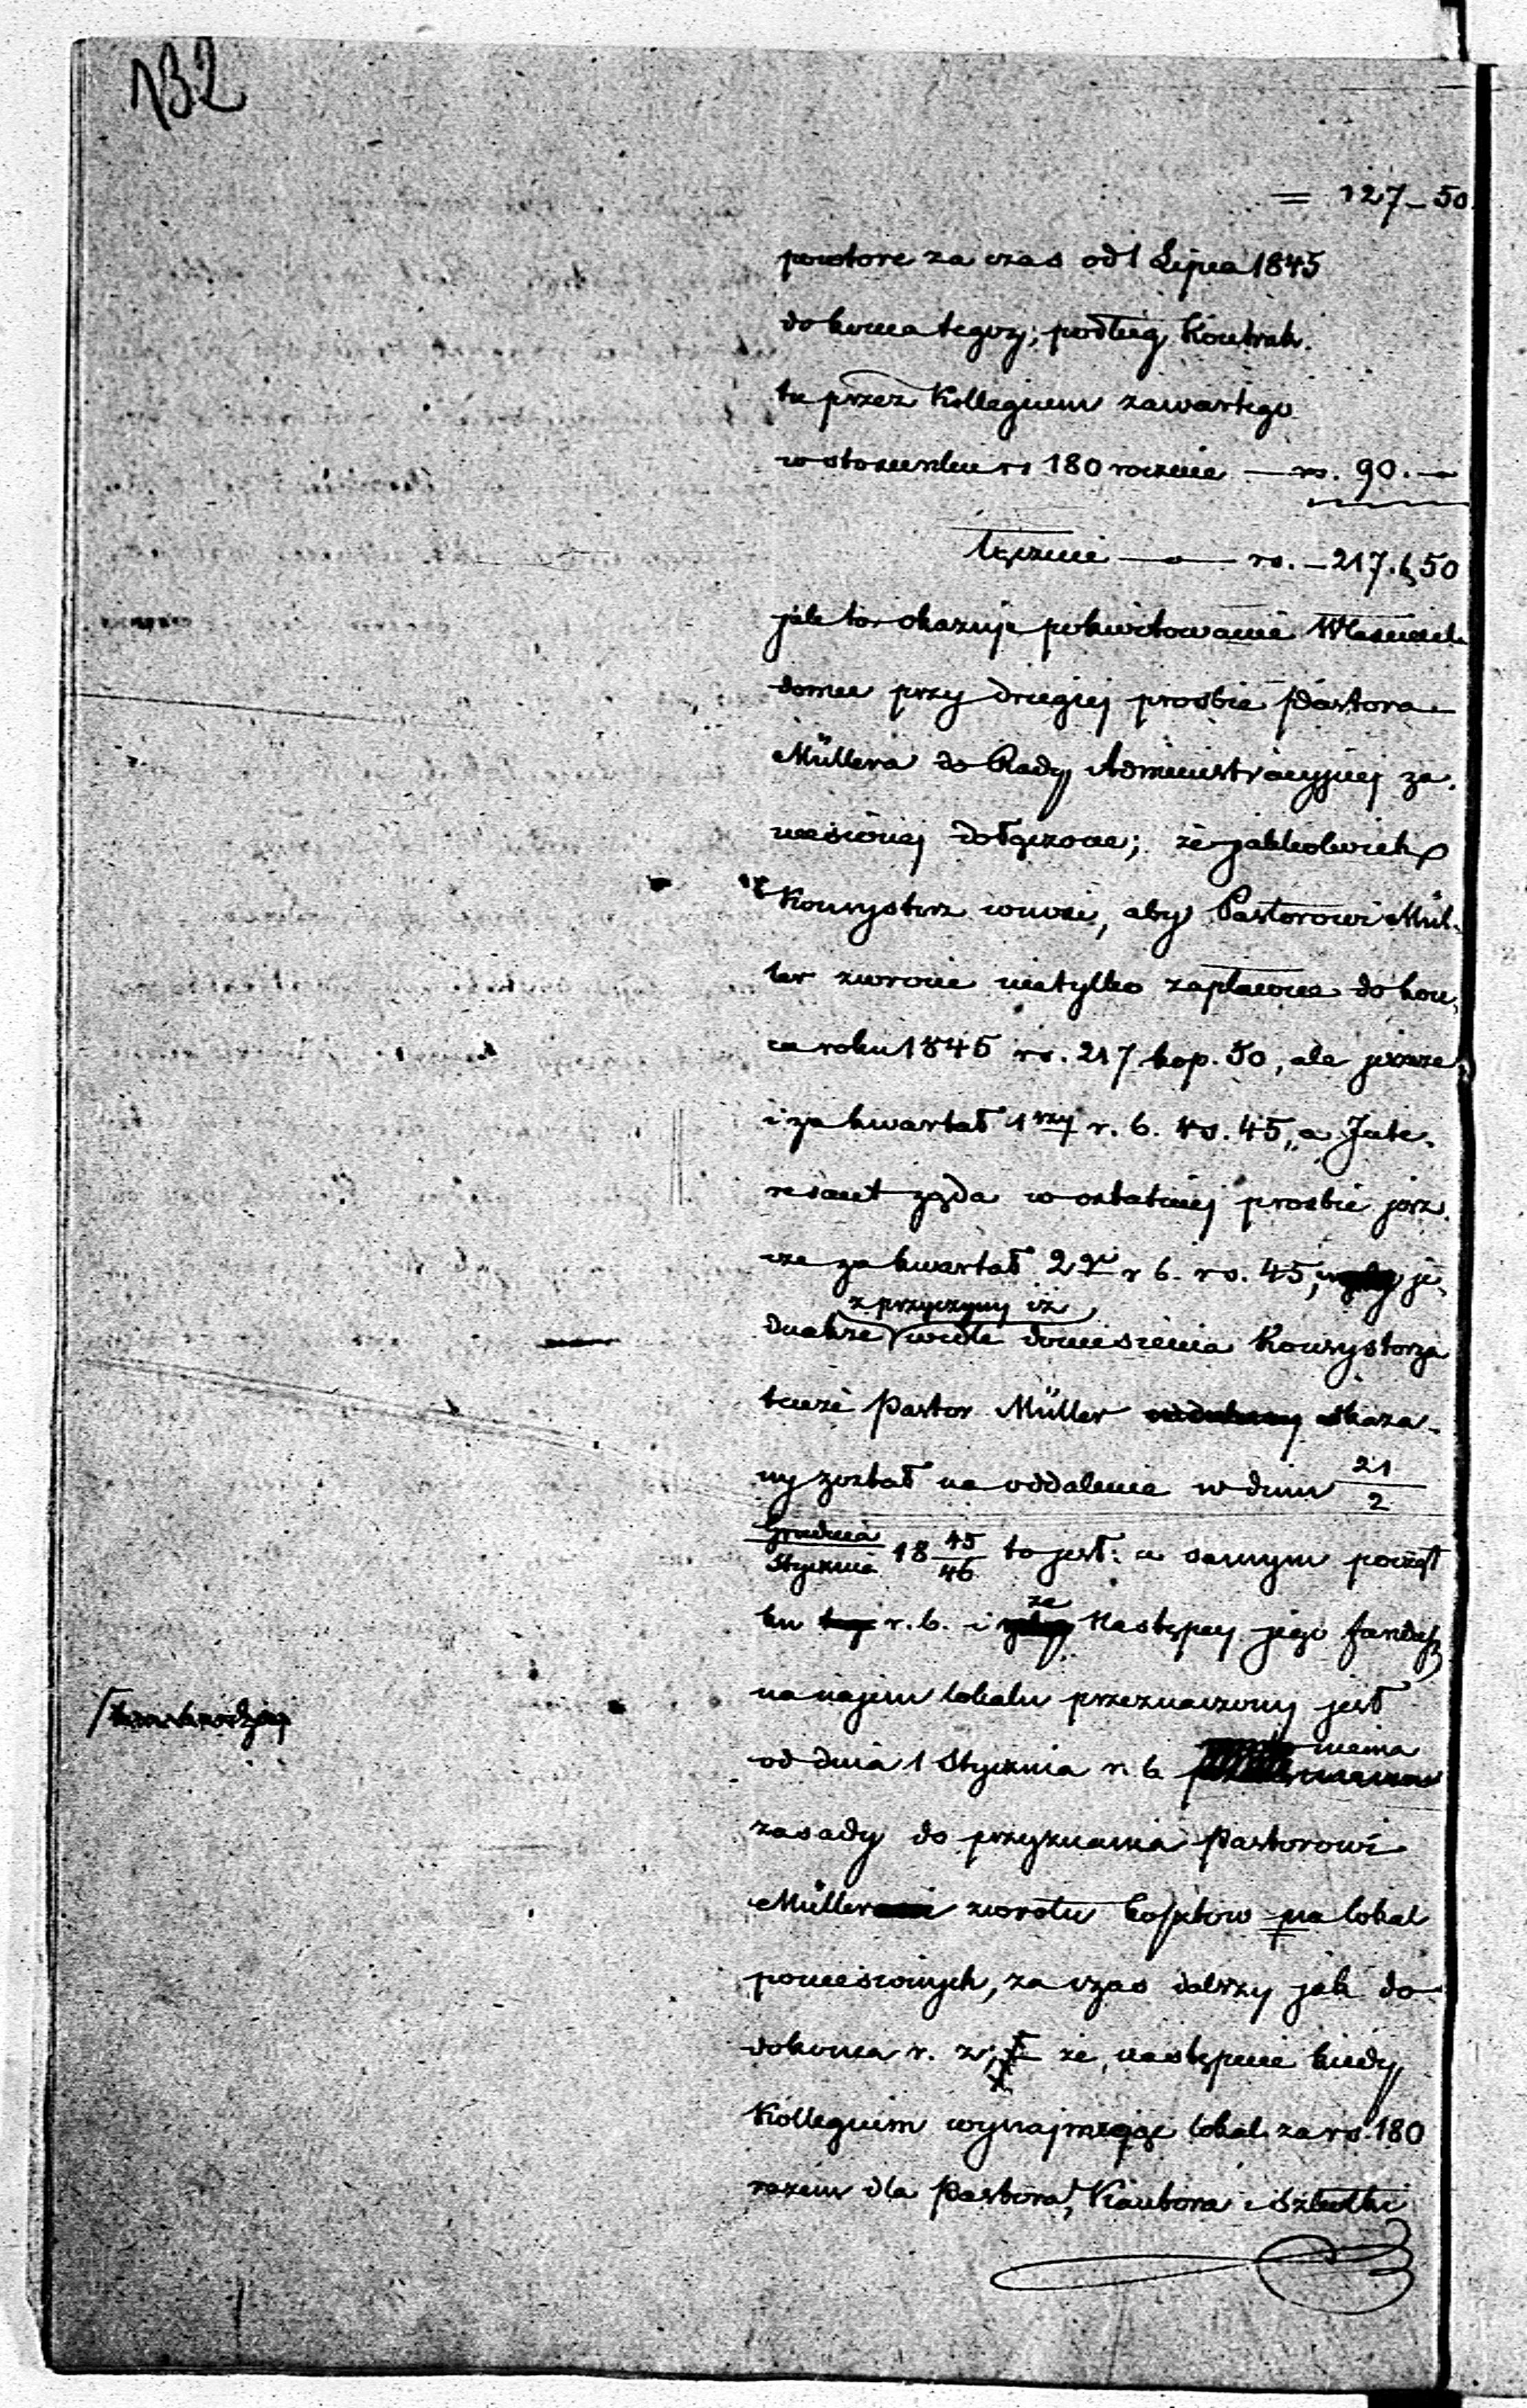 132
= 127 – 50.
powtore za czas od 1 Lipca 1845
do końca tegoż, podług Kontrak-
tu przez Kollegium zawartego
w stosunku rs 180 rocznie — rs. 90. —
łącznie — rs. – 217. k 50
jak to okazuje pokwitowanie Właściciela
domu przy drugiej prośbie Pastora
Müllera do Rady Administracyjnej za-
niesionej dołączone; że jakkolwiek
Konsystorz wnosi, aby Pastorowi Mül-
ler zwrócić nietylko zapłacone do koń-
ca roku 1845 rs. 217 kop. 50, ale jeszcze
i za kwartał 1szy r. b. rs. 45, a Inte-
resant żąda w ostatniej prośbie jesz-
cze za kwartał 2gi r b. rs. 45, je-
z przyczyny iż
dnakże wedle doniesienia Konsystorza
tenże Pastor Müller skaza-
ny został na oddalenie w dniu 21/2
Grudnia/Stycznia 18 45/46 to jest: w samym począt
ku r. b. i że Następcy jego fundusz
na najem lokalu przeznaczony jest
od dnia 1 Stycznia r. b. niema
zasady do przyznania Pastorowi
Müller zwrotu kosztów na lokal
poniesionych, za czas dalszy jak do
dokońca r. z; że, następnie kiedy
Kollegium wynajmując lokal za rs. 180
razem dla Pastora, Kantora i Szkółki